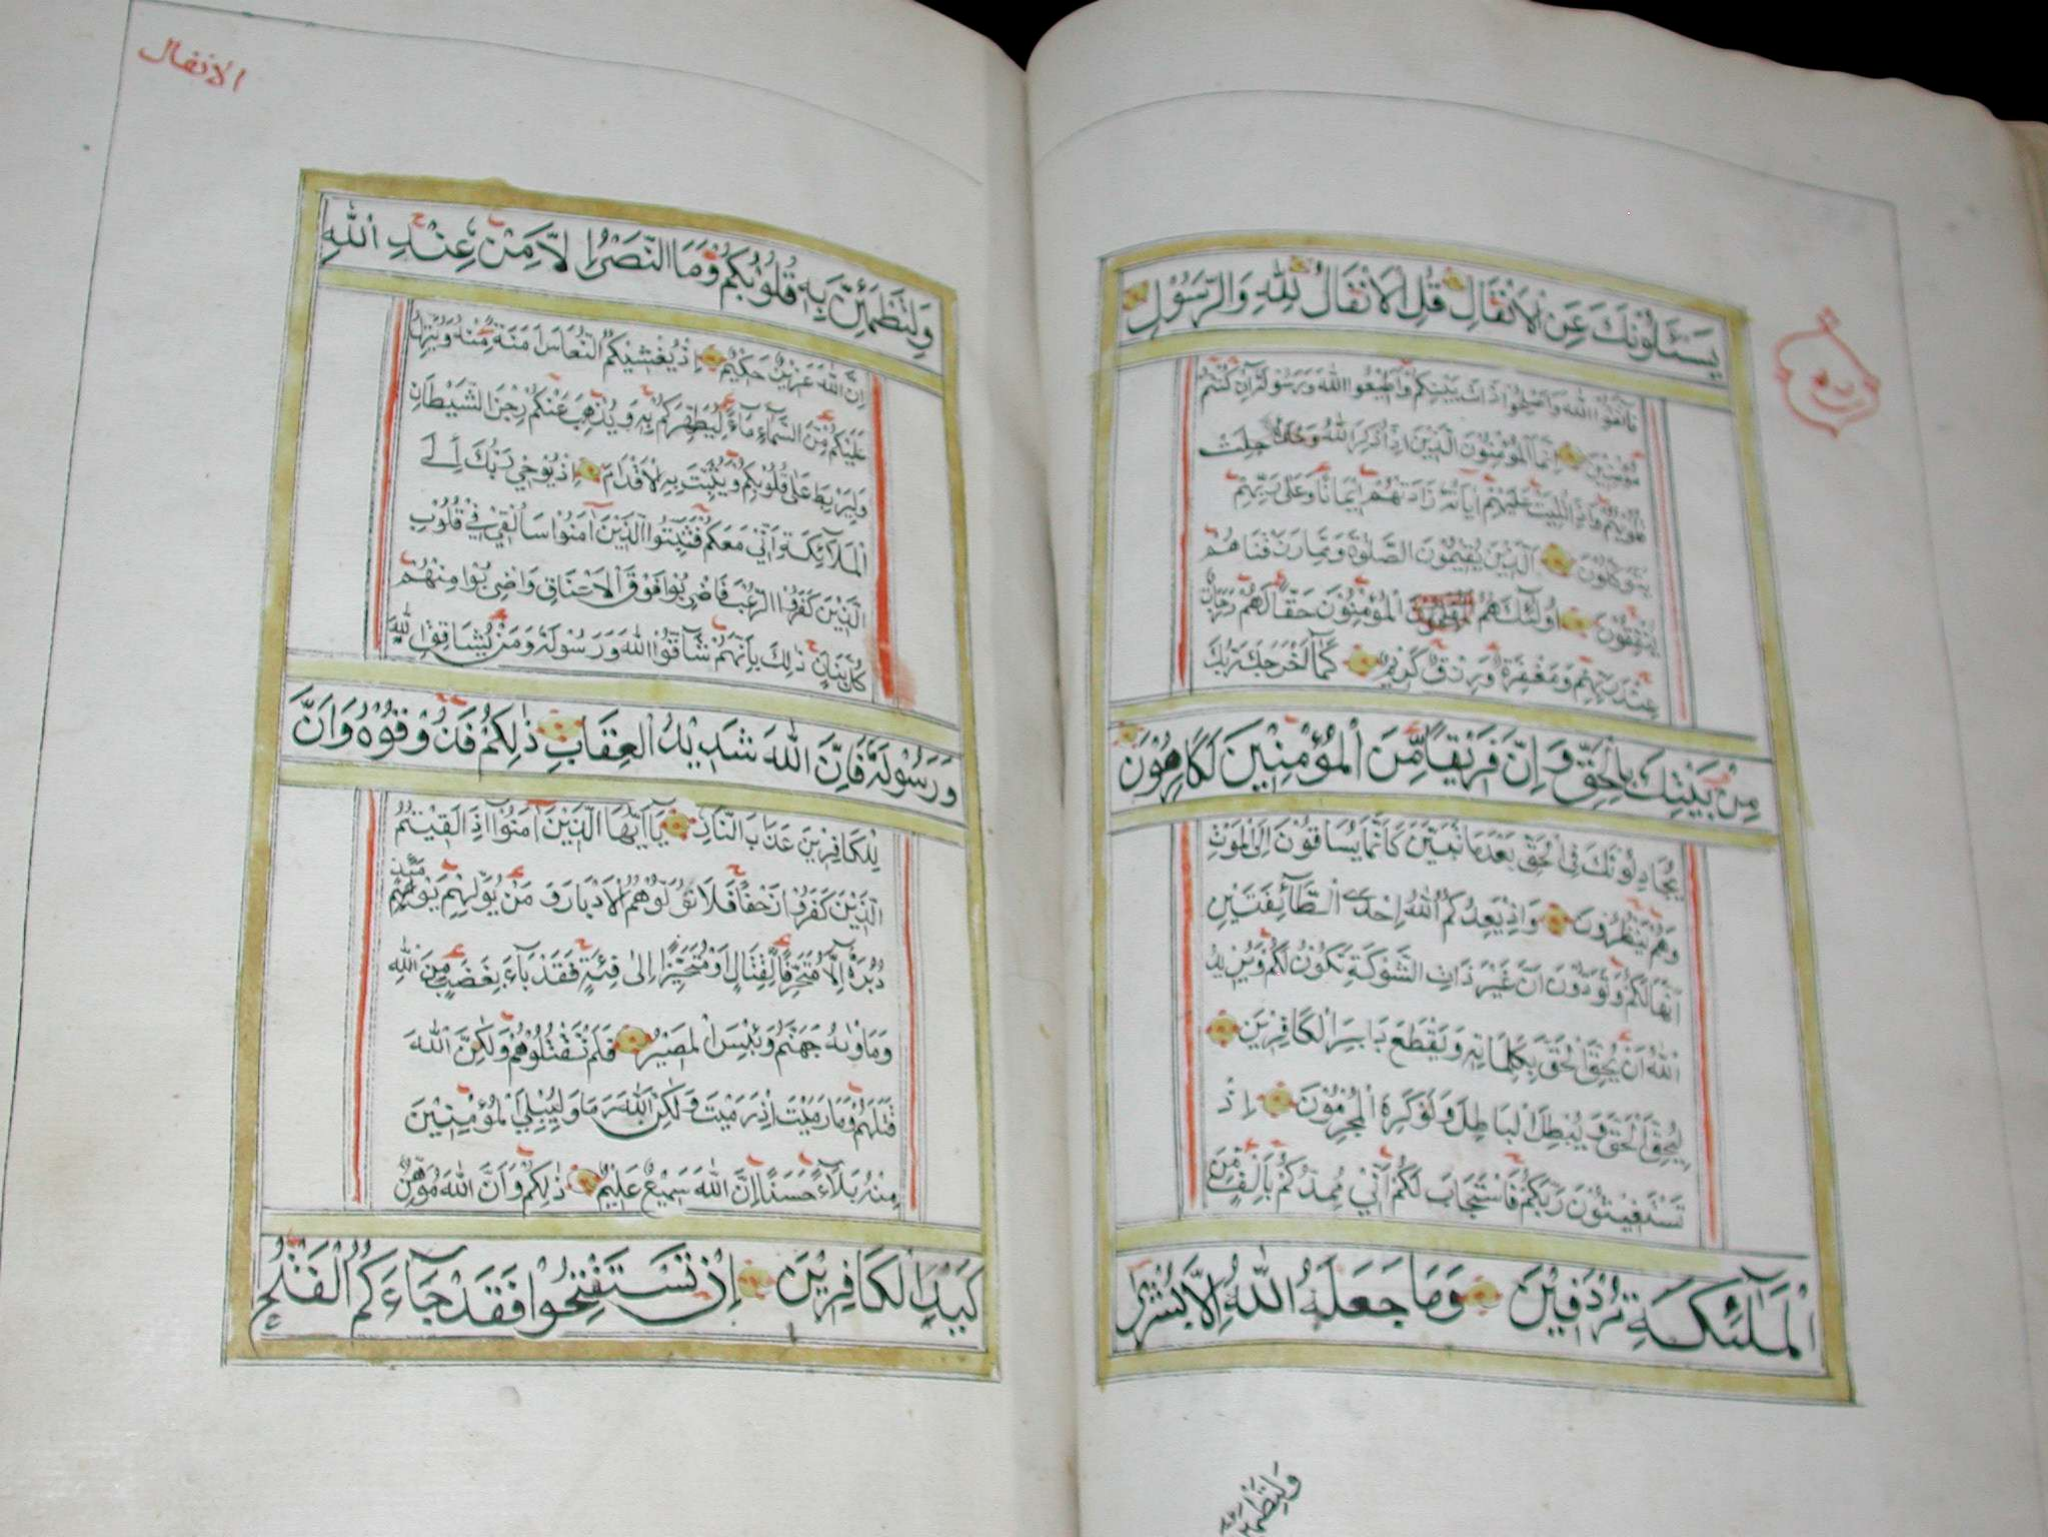 يَسْـَٔلُونَكَ عَنِ الْاَنْفَالِ قُلِ الْاَنْفَالُ لِلّٰهِ وَالرَّسُوْلِ
فَاتَّقُوا اللّٰهَ وَاَصْلِحُوْا ذَاتَ بَيْنِكُمْ وَاَطِيْعُوا اللّٰهَ وَرَسُوْلَهٗ اِنْ كُنْتُمْ
مُؤْمِنِيْنَ اِنَّمَا الْمُؤْمِنُوْنَ الَّذِيْنَ اِذَا ذُكِرَ اللّٰهُ وَجِلَتْ
قُلُوْبُهُمْ وَاِذَا تُلِيَتْ عَلَيْهِمْ اٰيَاتُهٗ زَادَتْهُمْ اِيْمَانًا وَعَلٰى رَبِّهِمْ
يَتَوَكَّلُوْنَ اَلَّذِيْنَ يُقِيْمُوْنَ الصَّلٰوةَ وَمِمَّا رَزَقْنَاهُمْ
يُنْفِقُوْنَ اُولٰٓئِكَ هُمُ الْمُؤْمِنُوْنَ حَقًّا لَهُمْ دَرَجَاتٌ
عِنْدَ رَبِّهِمْ وَمَغْفِرَةٌ وَرِزْقٌ كَرِيْمٌ كَمَآ اَخْرَجَكَ رَبُّكَ
مِنْ بَيْتِكَ بِالْحَقِّ وَاِنَّ فَرِيْقًا مِّنَ الْمُؤْمِنِيْنَ لَكَارِهُوْنَ
يُجَادِلُوْنَكَ فِي الْحَقِّ بَعْدَمَا تَبَيَّنَ كَاَنَّمَا يُسَاقُوْنَ اِلَى الْمَوْتِ
وَهُمْ يَنْظُرُوْنَ وَاِذْ يَعِدُكُمُ اللّٰهُ اِحْدَى الطَّآئِفَتَيْنِ
اَنَّهَا لَكُمْ وَتَوَدُّوْنَ اَنَّ غَيْرَ ذَاتِ الشَّوْكَةِ تَكُوْنُ لَكُمْ وَيُرِيْدُ
اللّٰهُ اَنْ يُحِقَّ الْحَقَّ بِكَلِمَاتِهٖ وَيَقْطَعَ دَابِرَ الْكَافِرِيْنَ
لِيُحِقَّ الْحَقَّ وَيُبْطِلَ الْبَاطِلَ وَلَوْ كَرِهَ الْمُجْرِمُوْنَ اِذْ
تَسْتَغِيْثُوْنَ رَبَّكُمْ فَاسْتَجَابَ لَكُمْ اَنِّيْ مُمِدُّكُمْ بِاَلْفٍ مِّنَ
الْمَلٰٓئِكَةِ مُرْدِفِيْنَ وَمَا جَعَلَهُ اللّٰهُ اِلَّا بُشْرٰى
وَلِتَطْمَئِنَّ
الانفال
وَلِتَطْمَئِنَّ بِهٖ قُلُوْبُكُمْ وَمَا النَّصْرُ اِلَّا مِنْ عِنْدِ اللّٰهِ
اِنَّ اللّٰهَ عَزِيْزٌ حَكِيْمٌ اِذْ يُغَشِّيْكُمُ النُّعَاسَ اَمَنَةً مِّنْهُ وَيُنَزِّلُ
عَلَيْكُمْ مِّنَ السَّمَآءِ مَآءً لِيُطَهِّرَكُمْ بِهٖ وَيُذْهِبَ عَنْكُمْ رِجْزَ الشَّيْطَانِ
وَلِيَرْبِطَ عَلٰى قُلُوْبِكُمْ وَيُثَبِّتَ بِهِ الْاَقْدَامَ اِذْ يُوْحِيْ رَبُّكَ اِلَى
الْمَلٰٓئِكَةِ اَنِّيْ مَعَكُمْ فَثَبِّتُوا الَّذِيْنَ اٰمَنُوْا سَاُلْقِيْ فِيْ قُلُوْبِ
الَّذِيْنَ كَفَرُوا الرُّعْبَ فَاضْرِبُوْا فَوْقَ الْاَعْنَاقِ وَاضْرِبُوْا مِنْهُمْ
كُلَّ بَنَانٍ ذٰلِكَ بِاَنَّهُمْ شَآقُّوا اللّٰهَ وَرَسُوْلَهٗ وَمَنْ يُّشَاقِقِ اللّٰهَ
وَرَسُوْلَهٗ فَاِنَّ اللّٰهَ شَدِيْدُ الْعِقَابِ ذٰلِكُمْ فَذُوْقُوْهُ وَاَنَّ
لِلْكَافِرِيْنَ عَذَابَ النَّارِ يَآ اَيُّهَا الَّذِيْنَ اٰمَنُوْٓا اِذَا لَقِيْتُمُ
الَّذِيْنَ كَفَرُوْا زَحْفًا فَلَا تُوَلُّوْهُمُ الْاَدْبَارَ وَمَنْ يُّوَلِّهِمْ يَوْمَئِذٍ
دُبُرَهٗٓ اِلَّا مُتَحَرِّفًا لِّقِتَالٍ اَوْ مُتَحَيِّزًا اِلٰى فِئَةٍ فَقَدْ بَآءَ بِغَضَبٍ مِّنَ اللّٰهِ
وَمَاْوٰىهُ جَهَنَّمُ وَبِئْسَ الْمَصِيْرُ فَلَمْ تَقْتُلُوْهُمْ وَلٰكِنَّ اللّٰهَ
قَتَلَهُمْ وَمَا رَمَيْتَ اِذْ رَمَيْتَ وَلٰكِنَّ اللّٰهَ رَمٰى وَلِيُبْلِيَ الْمُؤْمِنِيْنَ
مِنْهُ بَلَآءً حَسَنًا اِنَّ اللّٰهَ سَمِيْعٌ عَلِيْمٌ ذٰلِكُمْ وَاَنَّ اللّٰهَ مُوْهِنُ
كَيْدِ الْكَافِرِيْنَ اِنْ تَسْتَفْتِحُوْا فَقَدْ جَآءَكُمُ الْفَتْحُ